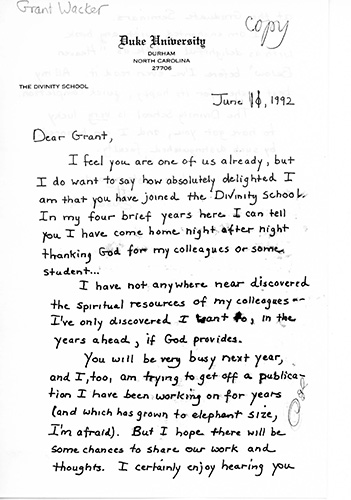 Grant Wacker
copy
Duke University
DURHAM
NORTH CAROLINA
27706
THE DIVINITY SCHOOL
June 10, 1992
Dear Grant,
I feel you are one of us already, but
I do want to say how absolutely delighted I
am that you have joined the Divinity School.
In my four brief years here I can tell
you I have come home night after night
thanking God for my colleagues or some
student...
I have not anywhere near discovered
the spiritual resources of my colleagues --
I've only discovered I want to, in the
years ahead, if God provides.
You will be very busy next year,
and I, too, am trying to get off a publica-
tion I have been working on for years
(and which has grown to elephant size,
I'm afraid). But I hope there will be
some chances to share our work and
thoughts. I certainly enjoy hearing you